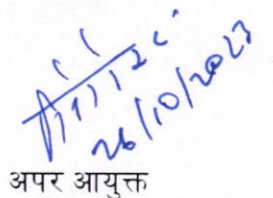 26/10/2023
अपर आयुक्त